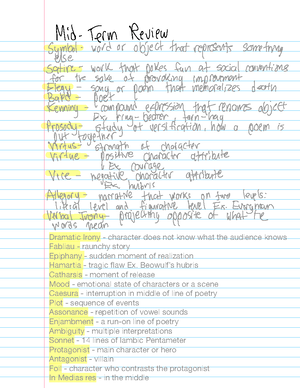 Mid-Term Review
Symbol - word or object that represents something
else
Satire - work that pokes fun at social conventions
for the sake of provoking improvement
Elegy - song or poem that memorializes death
Bard - poet
Kenning - compound expression that renames object
Ex. ring-bearer, torn-bay
Prosody - study of versification, how a poem is
put together
Virtus - strength of character
Virtue - positive character attribute
Ex. courage
Vice - negative character attribute
Ex. hubris
Allegory - narrative that works on two levels:
literal level and figurative level Ex. Everyman
Verbal Irony - projecting opposite of what the
words mean
Dramatic Irony - character does not know what the audience knows
Fabliau - raunchy story
Epiphany - sudden moment of realization
Hamartia - tragic flaw Ex. Beowulf's hubris
Catharsis - moment of release
Mood - emotional state of characters or a scene
Caesura - interruption in middle of line of poetry
Plot - sequence of events
Assonance - repetition of vowel sounds
Enjambment - a run-on line of poetry
Ambiguity - multiple interpretations
Sonnet - 14 lines of Iambic Pentameter
Protagonist - main character or hero
Antagonist - villain
Foil - character who contrasts the protagonist
In Medias res - in the middle